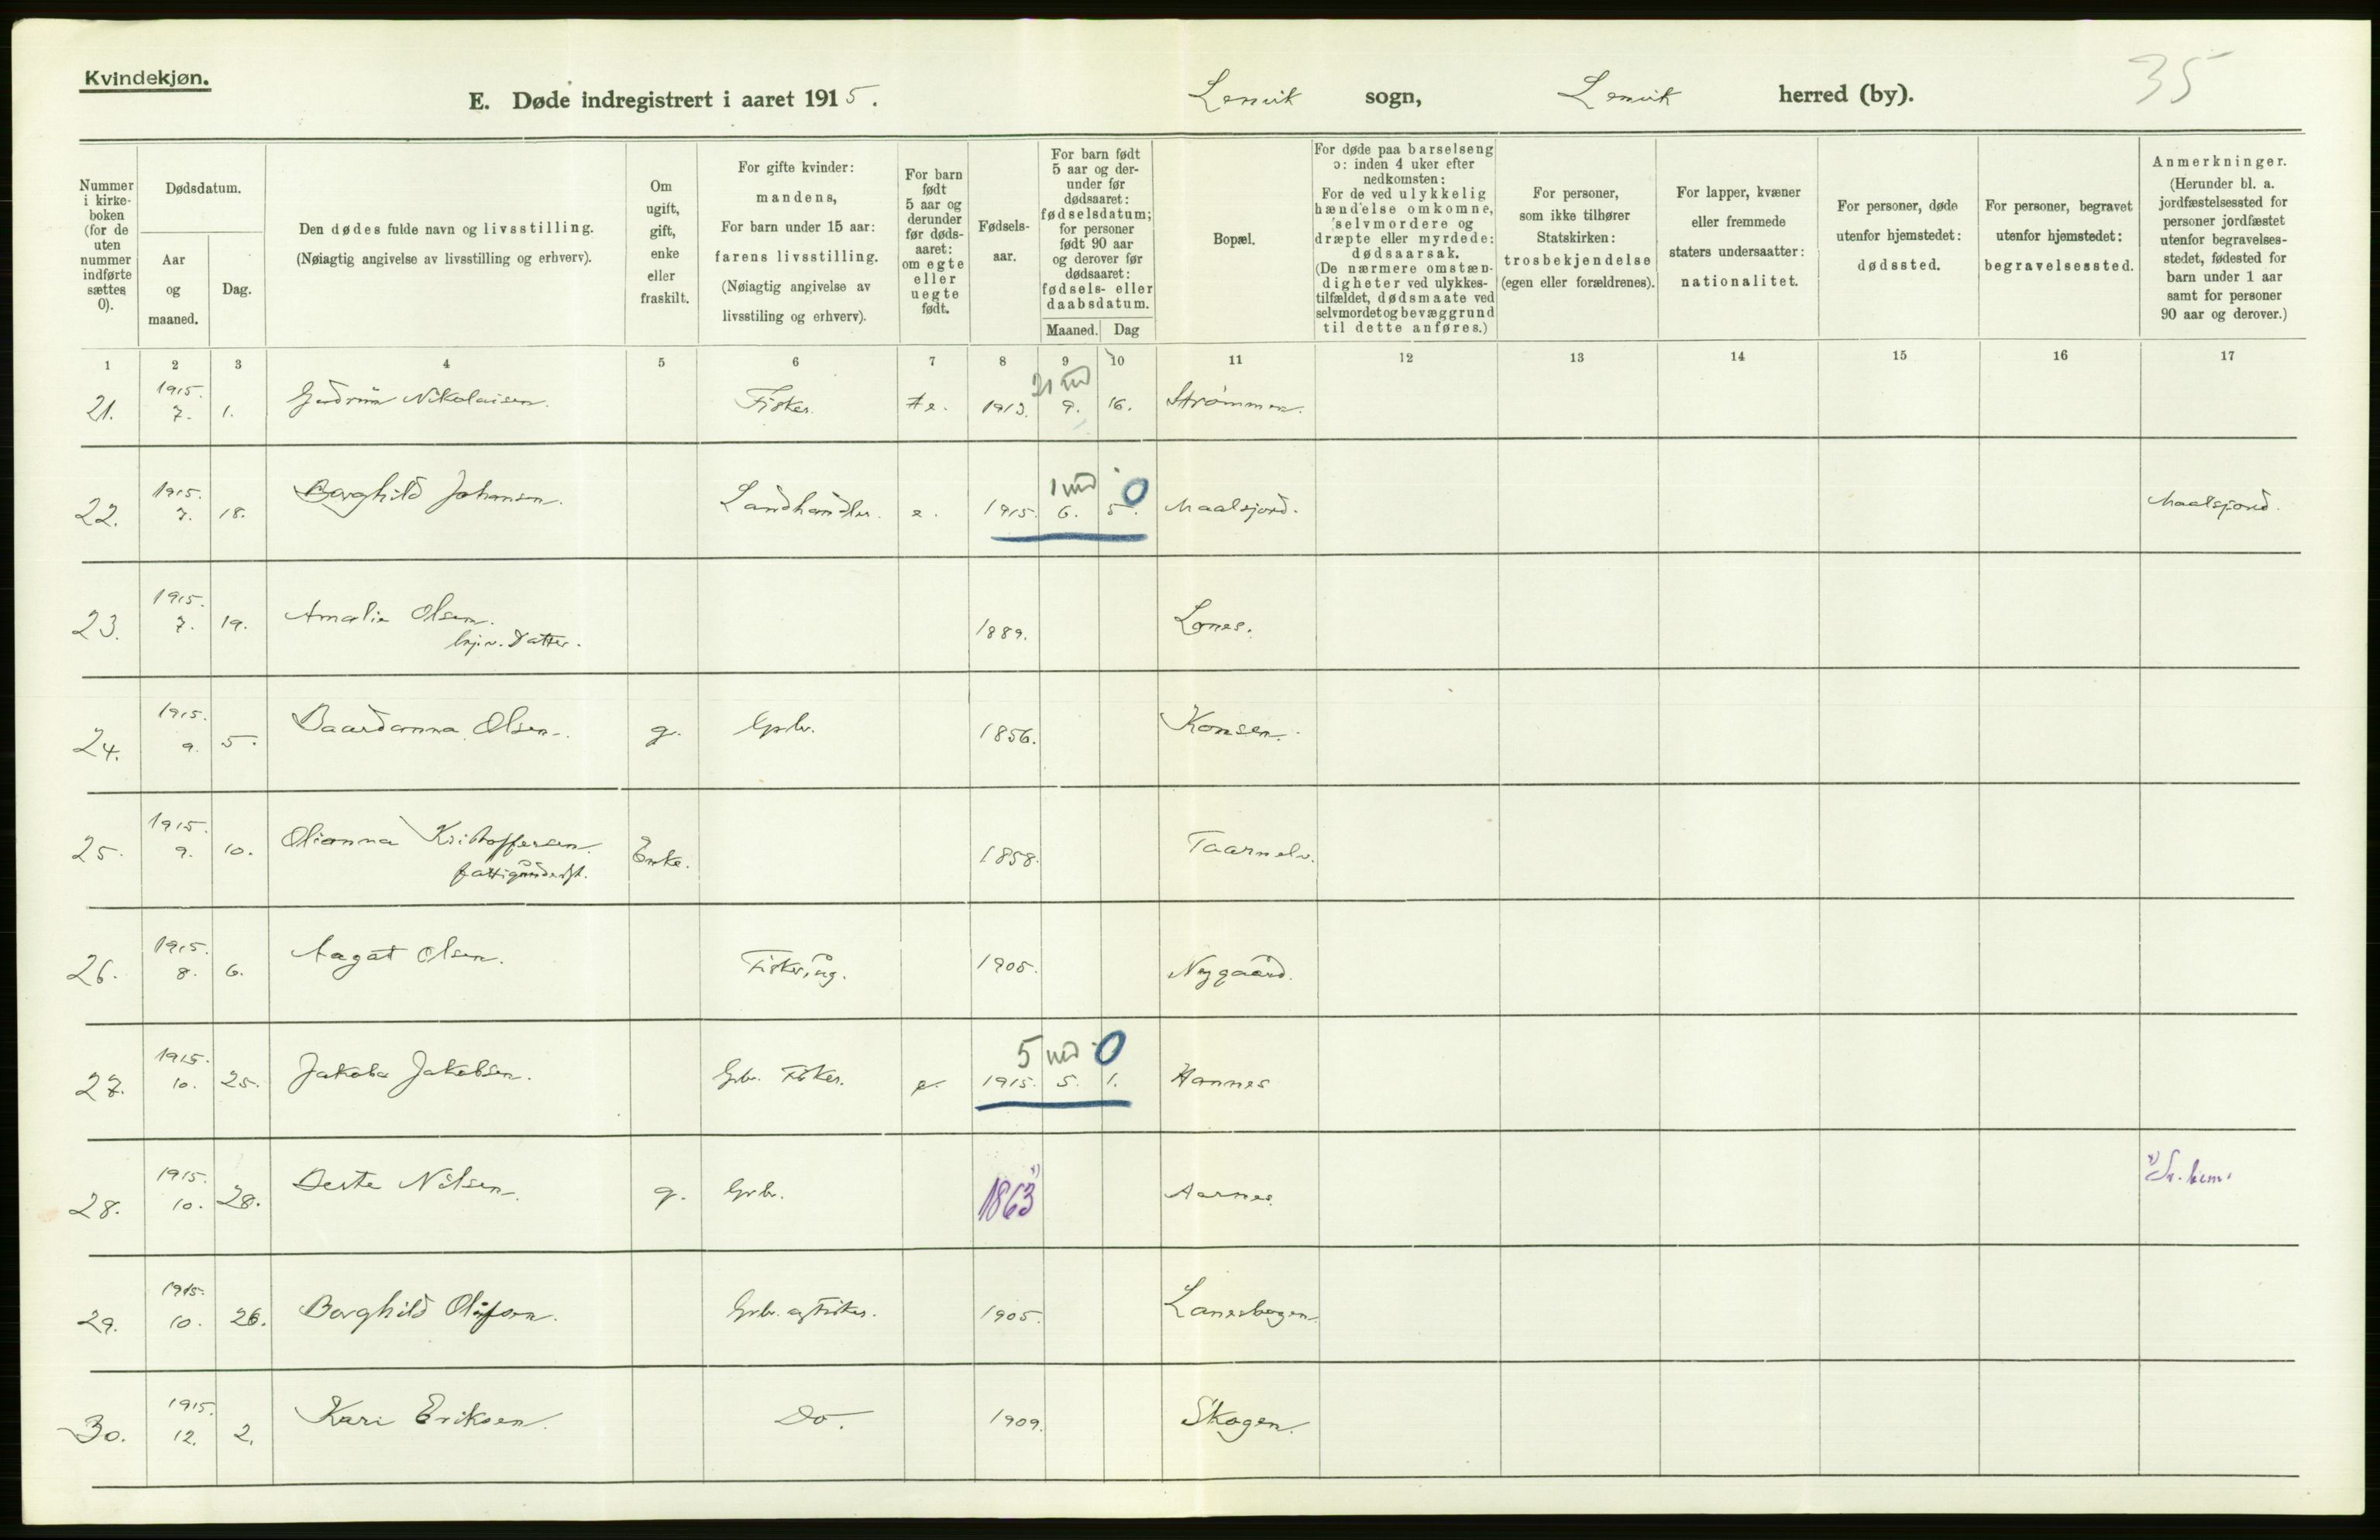 Kvindekjøn.
E. Døde indregistrert i aaret 1915.
Lenvik sogn, Lenvik herred (by).
35
Nummer i kirke-boken (for de uten nummer indførte sættes 0).
Dødsdatum.
Aar og maaned.
Dag.
Den dødes fulde navn og livsstilling.
(Nøiagtig angivelse av livsstilling og erhverv).
Om ugift, gift, enke eller fraskilt.
For gifte kvinder:
mandens,
For barn under 15 aar:
farens livsstilling.
(Nøiagtig angivelse av
livsstiling og erhverv).
For barn født 5 aar og derunder før døds-aaret: om egte eller uegte født.
Fødsels-aar.
For barn født 5 aar og der-under før dødsaaret: fødselsdatum; for personer født 90 aar og derover før dødsaaret: fødsels- eller daabsdatum.
Maaned. Dag
Bopæl.
For døde paa barselseng
ɔ: inden 4 uker efter
nedkomsten:
For de ved ulykkelig
hændelse omkomne,
selvmordere og
dræpte eller myrdede:
dødsaarsak.
(De nærmere omstæn-
digheter ved ulykkes-
tilfældet, dødsmaate ved
selvmordet og bevæggrund
til dette anføres.)
For personer,
som ikke tilhører
Statskirken:
trosbekjendelse
(egen eller forældrenes).
For lapper, kvæner
eller fremmede
staters undersaatter:
nationalitet.
For personer, døde
utenfor hjemstedet:
dødssted.
For personer, begravet
utenfor hjemstedet:
begravelsessted.
Anmerkninger.
(Herunder bl. a.
jordfæstelsessted for
personer jordfæstet
utenfor begravelses-
stedet, fødested for
barn under 1 aar
samt for personer
90 aar og derover.)
1 2 3 4 5 6 7 8 9 10 11 12 13 14 15 16 17
21. 1915. 7. 1. Gudrun Nikolaisen. Fisker. e. 1913. 21 md 9. 16. Strømmen.
22. 1915. 7. 18. Borghild Johansen. Landhandler. e. 1915. 1 md 0 6. 5. Maalsjord. Maalsjord.
23. 1915. 7. 19. Amalie Olsen.
hjv. Datter. 1889. Lanes.
24. 1915. 9. 5. Baardanna Olsen. g. Gbr. 1856. Konsen.
25. 1915. 9. 10. Olianna Kristoffersen.
fattigunderst. Enke. 1858. Taarnelv.
26. 1915. 8. 6. Aagot Olsen. Fisker, ug. 1905. Nygaard.
27. 1915. 10. 25. Jakoba Jakobsen. Gbr. Fisker. e. 5 md 0 1915. 5. 1. Hannes
28. 1915. 10. 28. Berte Nilsen. g. Gbr. 1863 Aarnes.
29. 1915. 10. 26. Borghild Olufsen. Gbr. og Fisker. 1905. Lanesbogen.
30. 1915. 12. 2. Kari Eriksen. Do. 1909. Skogen.